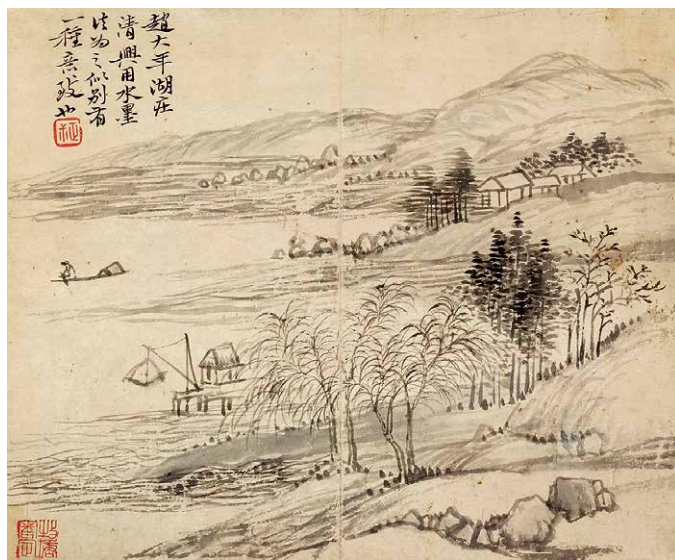 趙大年湖庄
清興用水墨
法為之似別有
一種意致也